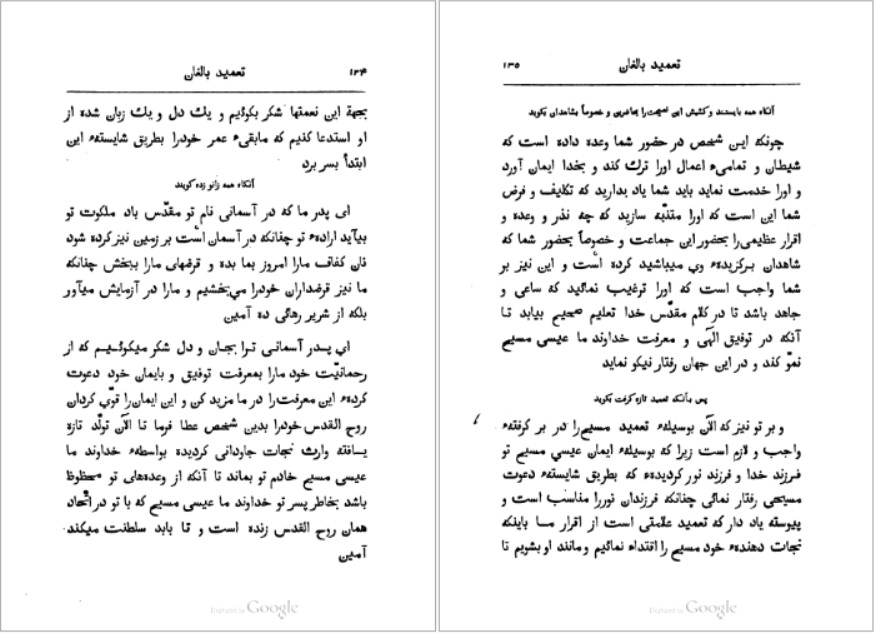 تعمید بالغان
۱۳۴
بجهة این نعمتها شکر بکوئیم و یك دل و یك زبان شده از
او استدعا کنیم که مابقیء عمر خودرا بطریق شایستهء این
ابتدأ بسر برد
آنکاه همه زانو زده کویند
ای پدر ما که در آسمانی نام تو مقدّس باد ملکوت تو
بیآید ارادهء تو چنانکه در آسمان است بر زمین نیز کرده شود
نان کفاف مارا امروز بما بده و قرضهای مارا ببخش چنانکه
ما نیز قرضداران خودرا می‌بخشیم و مارا در آزمایش میآور
بلکه از شریر رهائی ده آمین
ای پدر آسمانی ترا بجان و دل شکر میکوئیم که از
رحمانیّت خود مارا بمعرفت توفیق و بایمان خود دعوت
کردهء این معرفت را در ما مزید کن و این ایمان را قوّی کردان
روح القدس خودرا بدین شخص عطا فرما تا الآن تولّد تازه
یافته وارث نجات جاودانی کردیده بواسطهء خداوند ما
عیسی مسیح خادم تو بماند تا آنکه از وعده‌های تو محظوظ
باشد بخاطر پسر تو خداوند ما عیسی مسیح که با تو در اتّحاد
همان روح القدس زنده است و تا بابد سلطنت میکند
آمین
Digitized by Google
تعمید بالغان
۱۳۵
آنکاه همه بایستند و کشیش این نصیحت را بحاضرین و خصوصاً بشاهدان بکوید
چونکه این شخص در حضور شما وعده داده است که
شیطان و تمامیء اعمال اورا ترك کند و بخدا ایمان آورد
و اورا خدمت نماید باید شما یاد بدارید که تکلیف و فرض
شما این است که اورا متنبّه سازید که چه نذر و وعده و
اقرار عظیمی را بحضور این جماعت و خصوصاً بحضور شما که
شاهدان برکزیدهء وی میباشید کرده است و این نیز بر
شما واجب است که اورا ترغیب نمائید که ساعی و
جاهد باشد تا در کلام مقدّس خدا تعلیم صحیح بیابد تا
آنکه در توفیق الٓهی و معرفت خداوند ما عیسی مسیح
نموّ کند و در این جهان رفتار نیکو نماید
پس بآنکه تعمید تازه کرفت بکوید
و بر تو نیز که الآن بوسیلهء تعمید مسیح را در بر کرفتهء
واجب و لازم است زیرا که بوسیلهء ایمان عیسی مسیح تو
فرزند خدا و فرزند نور کردیدهء که بطریق شایستهء دعوت
مسیحی رفتار نمائی چنانکه فرزندان نوررا مناسب است و
پیوسته یاد دار که تعمید علامتی است از اقرار ما باینکه
نجات دهندهء خود مسیح را اقتداء نمائیم و مانند او بشویم تا
Digitized by Google